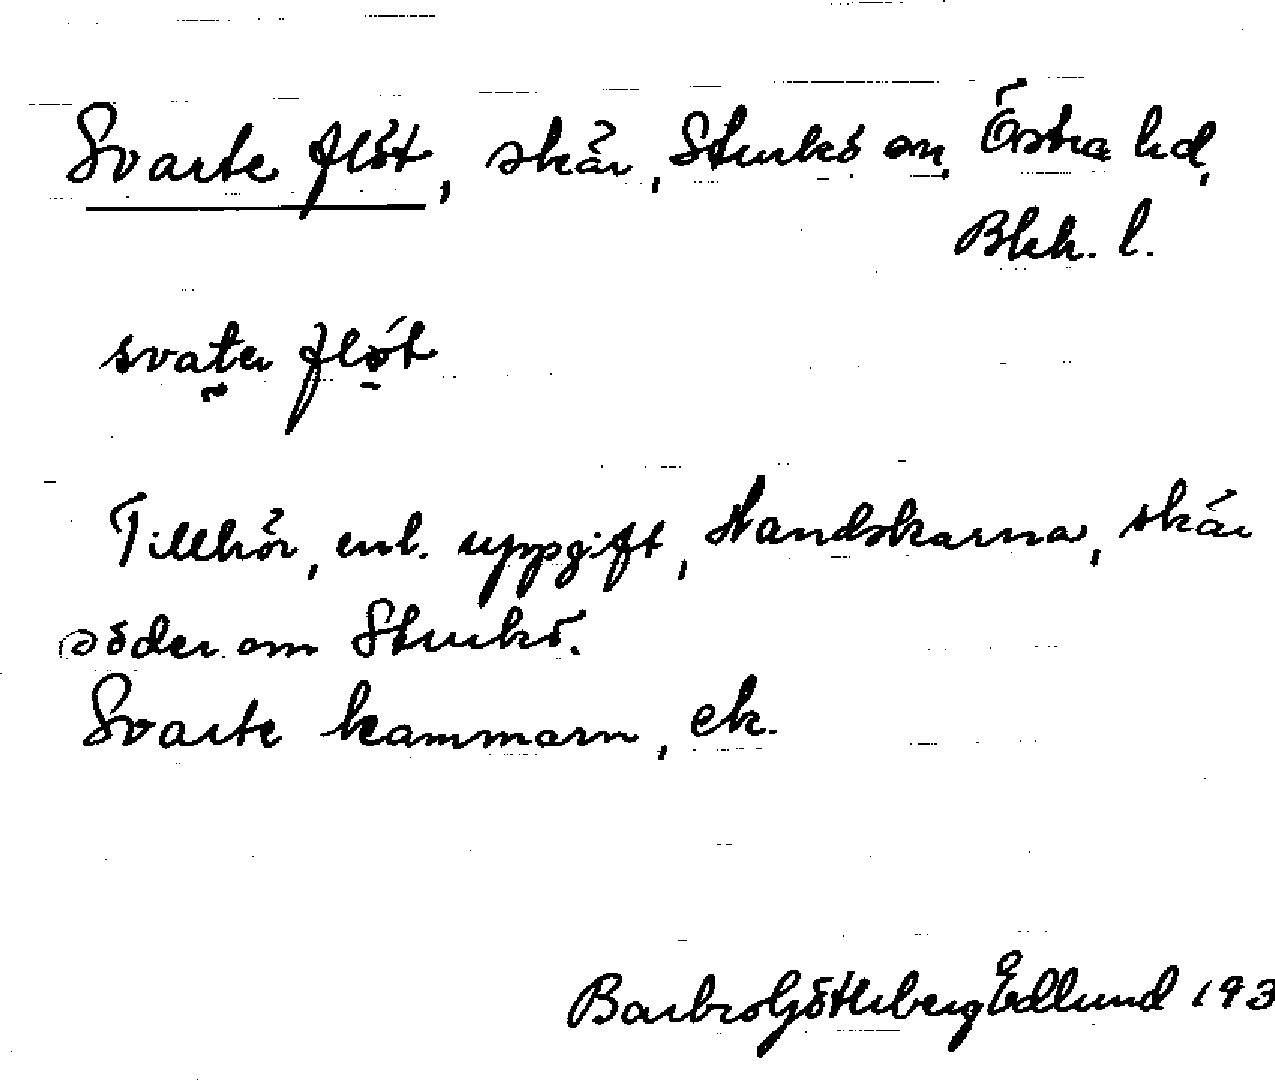 Svarte flöt, skär, Sturkö sn, Östra hd,
Blek. l.
Tillhör, enl. uppgift, Handskarna, skär
söder om Sturkö.
Svarte kammarn, ek.
Barbro Götherberg Edlund 193